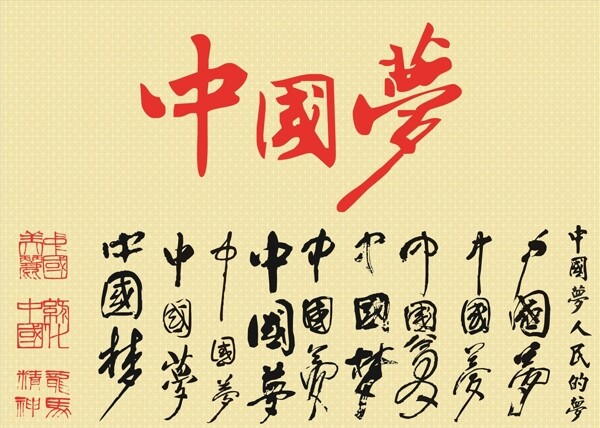 中國夢
中國夢人民的夢
中國夢
中國夢
中國夢
中國梦
中國夢
中國夢
中國夢
中國夢
中國梦
中國美麗
中國
龍馬精神